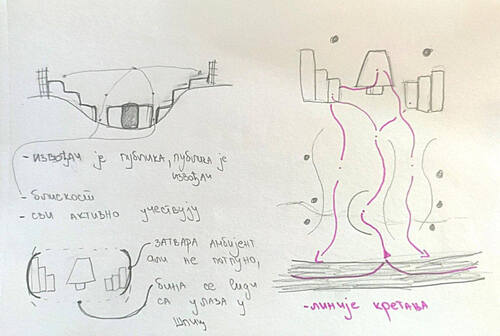 - ИЗВОЂАЧ ЈЕ ПУБЛИКА, ПУБЛИКА ЈЕ
ИЗВОЂАЧ
- БЛИСКОСТ
- СВИ АКТИВНО УЧЕСТВУЈУ
ЗАТВАРА АМБИЈЕНТ
АЛИ НЕ ПОТПУНО,
БИНА СЕ ВИДИ
СА УЛАЗА У
ШПИЦ
- ЛИНИЈЕ КРЕТАЊА